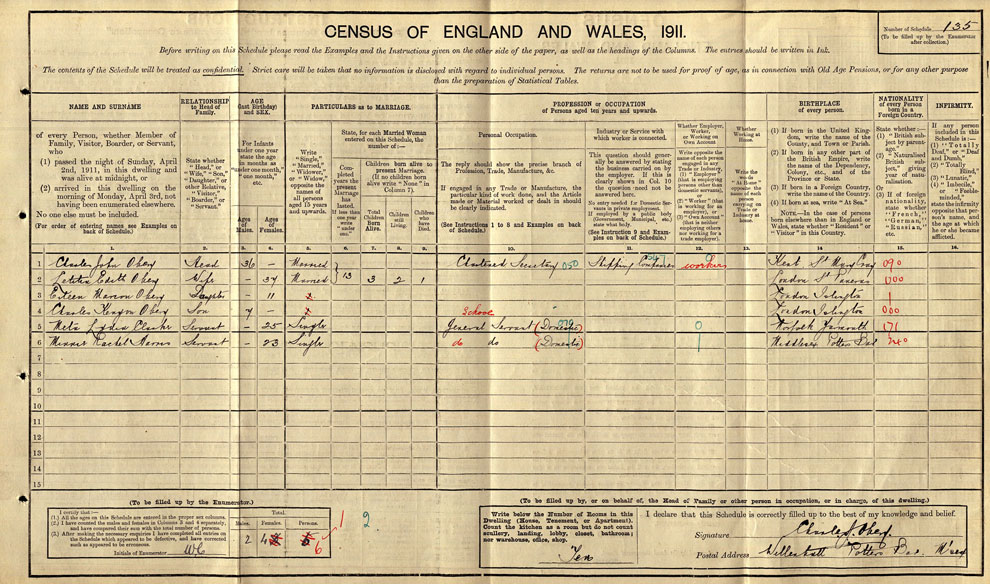 CENSUS OF ENGLAND AND WALES, 1911.
Number of Schedule 135
(To be filled up by the Enumerator
after collection.)
Before writing on this Schedule please read the Examples and the Instructions given on the other side of the paper, as well as the headings of the Columns. The entries should be written in Ink.
The contents of the Schedule will be treated as confidential. Strict care will be taken that no information is disclosed with regard to individual persons. The returns are not to be used for proof of age, as in connection with Old Age Pensions, or for any other purpose
than the preparation of Statistical Tables.
NAME AND SURNAME
of every Person, whether Member of
Family, Visitor, Boarder, or Servant,
who
(1) passed the night of Sunday, April
2nd, 1911, in this dwelling and
was alive at midnight, or
(2) arrived in this dwelling on the
morning of Monday, April 3rd, not
having been enumerated elsewhere.
No one else must be included.
(For order of entering names see Examples on
back of Schedule.)
RELATIONSHIP
to Head of
Family.
State whether
"Head," or
"Wife," "Son,"
"Daughter," or
other Relative,
"Visitor,"
"Boarder," or
"Servant."
2.
AGE
(last Birthday)
and SEX.
For Infants
under one year
state the age
in months as
"under one month,"
"one month,"
etc.
Ages of Males.
Ages of Females.
3.
4.
PARTICULARS as to MARRIAGE.
Write
"Single,"
"Married,"
"Widower,"
or "Widow,"
opposite the
names of
all persons
aged 15 years
and upwards.
5.
State, for each Married Woman
entered on this Schedule, the
number of:—
Completed years the present Marriage has lasted. If less than one year write "under one."
6.
Children born alive to
present Marriage.
(If no children born
alive write "None" in
Column 7).
Total Children Born Alive.
Children still Living.
Children who have Died.
7.
8.
9.
PROFESSION or OCCUPATION
of Persons aged ten years and upwards.
Personal Occupation.
The reply should show the precise branch of
Profession, Trade, Manufacture, &c.
If engaged in any Trade or Manufacture, the
particular kind of work done, and the Article
made or Material worked or dealt in should
be clearly indicated.
(See Instructions 1 to 8 and Examples on back
of Schedule.)
10.
Industry or Service with
which worker is connected.
This question should generally be answered by stating
the business carried on by
the employer. If this is
clearly shown in Col. 10
the question need not be
answered here.
No entry needed for Domestic Servants in private employment.
If employed by a public body
(Government, Municipal, etc.)
state what body.
(See Instruction 9 and Examples on back of Schedule.)
11.
Whether Employer,
Worker,
or Working on
Own Account.
Write opposite the
name of each person
engaged in any
Trade or Industry,
(1) "Employer"
(that is employing
persons other than
domestic servants),
or
(2) "Worker" (that
is working for an
employer), or
(3) "Own Account"
(that is neither
employing others
nor working for a
trade employer).
12.
Whether
Working at
Home.
Write the
words
"At Home"
opposite the
name of each
person
carrying on
Trade or
Industry at
home.
13.
BIRTHPLACE
of every person.
(1) If born in the United Kingdom, write the name of the
County, and Town or Parish.
(2) If born in any other part of
the British Empire, write
the name of the Dependency,
Colony, etc., and of the
Province or State.
(3) If born in a Foreign Country,
write the name of the Country.
(4) If born at sea, write "At Sea."
NOTE.—In the case of persons
born elsewhere than in England or
Wales, state whether "Resident" or
"Visitor" in this Country.
14.
NATIONALITY
of every Person
born in a
Foreign Country.
State whether:—
(1) "British subject by parentage,"
(2) "Naturalised
British subject," giving
year of naturalisation.
Or
(3) If of foreign
nationality,
state whether
"French,"
"German,"
"Russian,"
etc.
15.
INFIRMITY.
If any person
included in this
Schedule is:—
(1) "Totally
Deaf," or "Deaf
and Dumb,"
(2) "Totally
Blind,"
(3) "Lunatic,"
(4) "Imbecile,"
or "Feeble-minded,"
state the infirmity
opposite that person's name, and
the age at which
he or she became
afflicted.
16.
1 Charles John Obery Head 36 – Married Chartered Secretary 050 Shipping Companies worker Kent St Mary Cray 090
2 Letitia Edith Obery Wife – 37 Married 13 3 2 1 London St Pancras 000
3 Eileen Obery Daughter – 11 London Islington 1
4 Charles Kenyon Obery Son 7 – School London Islington 000
5 Meta Lydia Clarke Servant – 25 Single General Servant (Domestic) 0 Norfolk Yarmouth 171
6 Minnie Rachel Servant – 23 Single do do (Domestic) 1 Middlesex Potters Bar 240
7
8
9
10
11
12
13
14
15
(To be filled up by the Enumerator.)
I certify that:—
(1.) All the ages on this Schedule are entered in the proper sex columns.
(2.) I have counted the males and females in Columns 3 and 4 separately,
and have compared their sum with the total number of persons.
(3.) After making the necessary enquiries I have completed all entries on
the Schedule which appeared to be defective, and have corrected
such as appeared to be erroneous.
Initials of Enumerator WC
Total.
Males. Females. Persons.
2 4 6
1 2
(To be filled up by, or on behalf of, the Head of Family or other person in occupation, or in charge, of this dwelling.)
Write below the Number of Rooms in this
Dwelling (House, Tenement, or Apartment).
Count the kitchen as a room but do not count
scullery, landing, lobby, closet, bathroom;
nor warehouse, office, shop.
Ten
I declare that this Schedule is correctly filled up to the best of my knowledge and belief.
Signature Charles J. Obery
Postal Address Willenhall Potters Bar